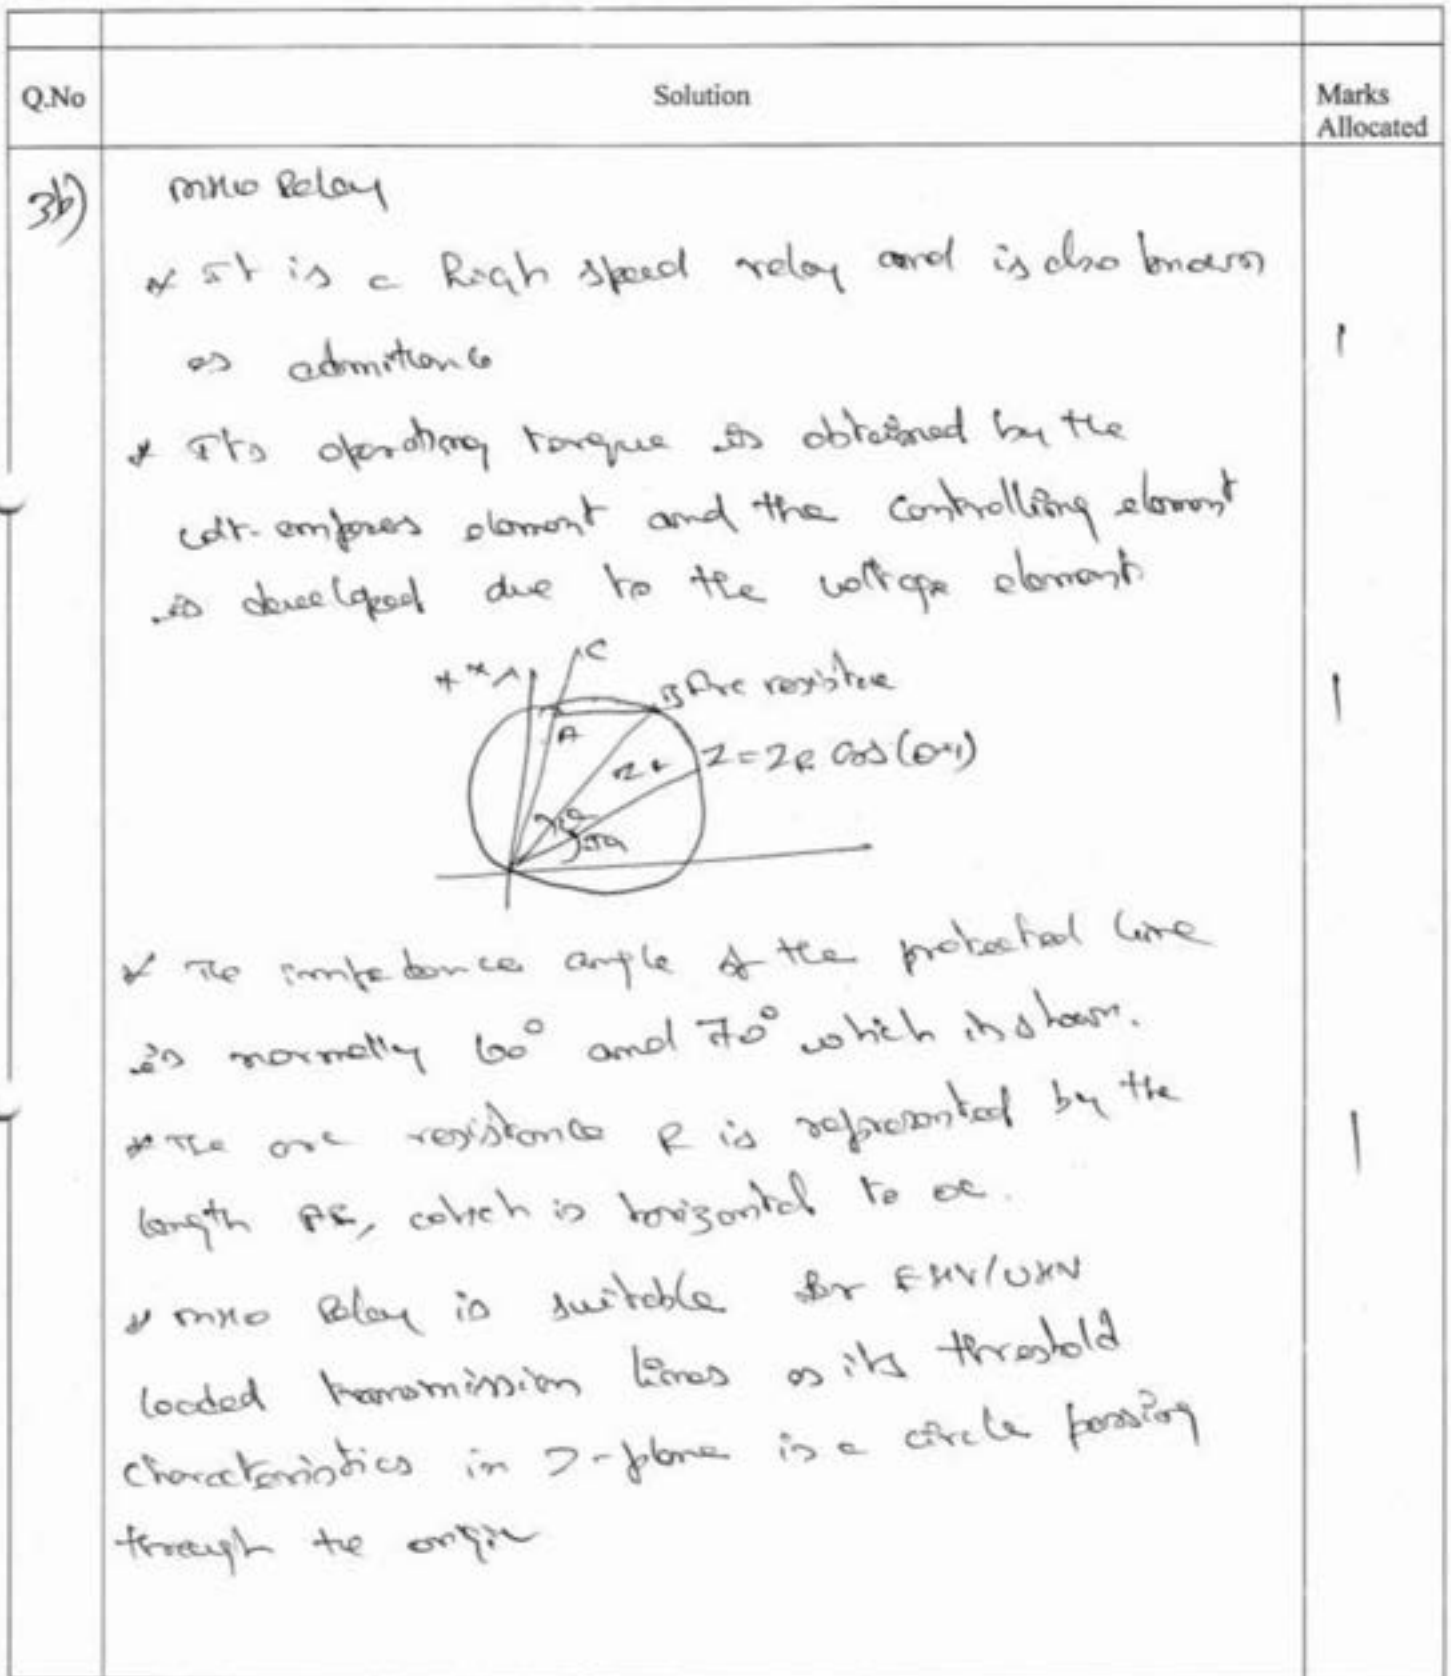 Q.No Solution Marks Allocated
3b) MHO Relay
* It is a high speed relay and is also known
as admittance
1
* Its operating torque is obtained by the
volt-amperes element and the controlling element
is developed due to the voltage element
C
B Arc resistce
1
A
Z = ZR Cos(
* The impedance angle of the protected line
is normally 60° and 70° which is shown.
* The arc resistance R is represented by the
1
length AB, which is horizontal to OC.
* MHO Relay is suitable for EHV/UHV
loaded transmission lines as its threshold
characteristics in Z-plane is a circle passing
through the origin